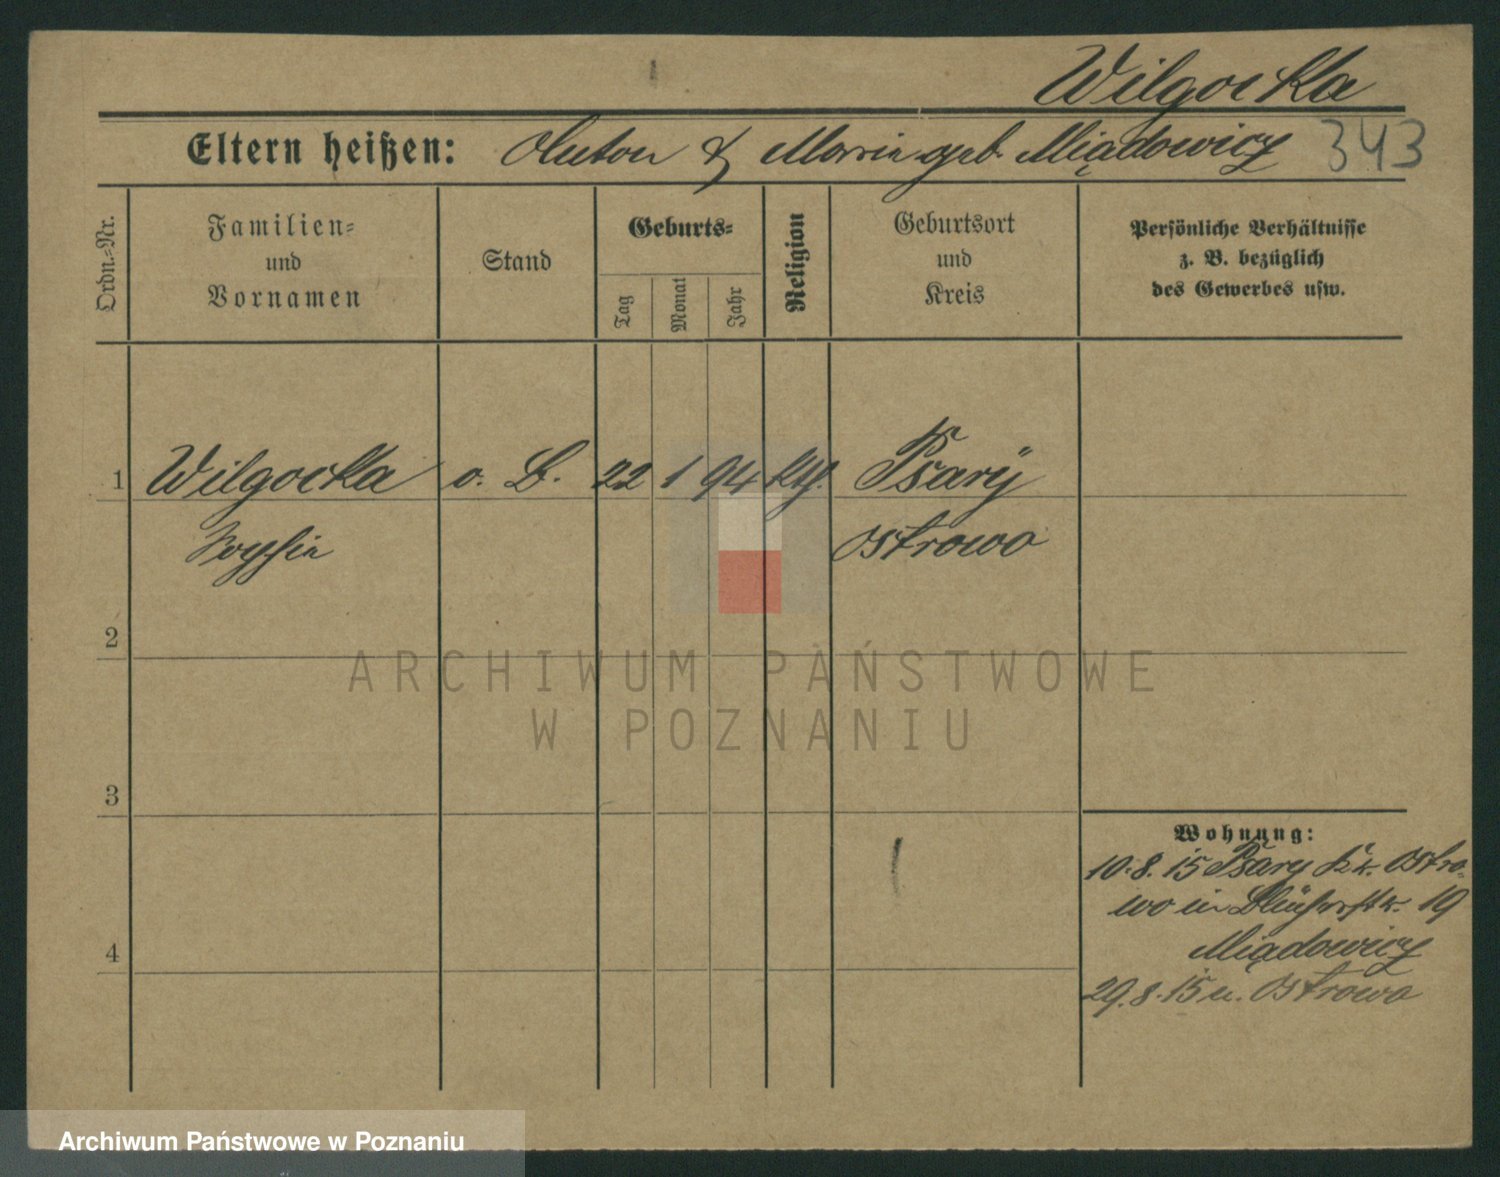 Wilgocka
Eltern heißen: Anton & Maria geb. Miądowicz 343
Ordn.-Nr.
Familien- und Vornamen
Stand
Geburts-
Tag
Monat
Jahr
Religion
Geburtsort und Kreis
Persönliche Verhältnisse
z. B. bezüglich
des Gewerbes usw.
1 Wilgocka o. B. 22 1 94 kth. Psary
Ostrowo
2
3
4
Wohnung:
10.8.15 Psary Kr. Ostro-
wo in 19
Miądowicz
29.8.15 n. Ostrowo
ARCHIWUM PAŃSTWOWE
W POZNANIU
Archiwum Państwowe w Poznaniu